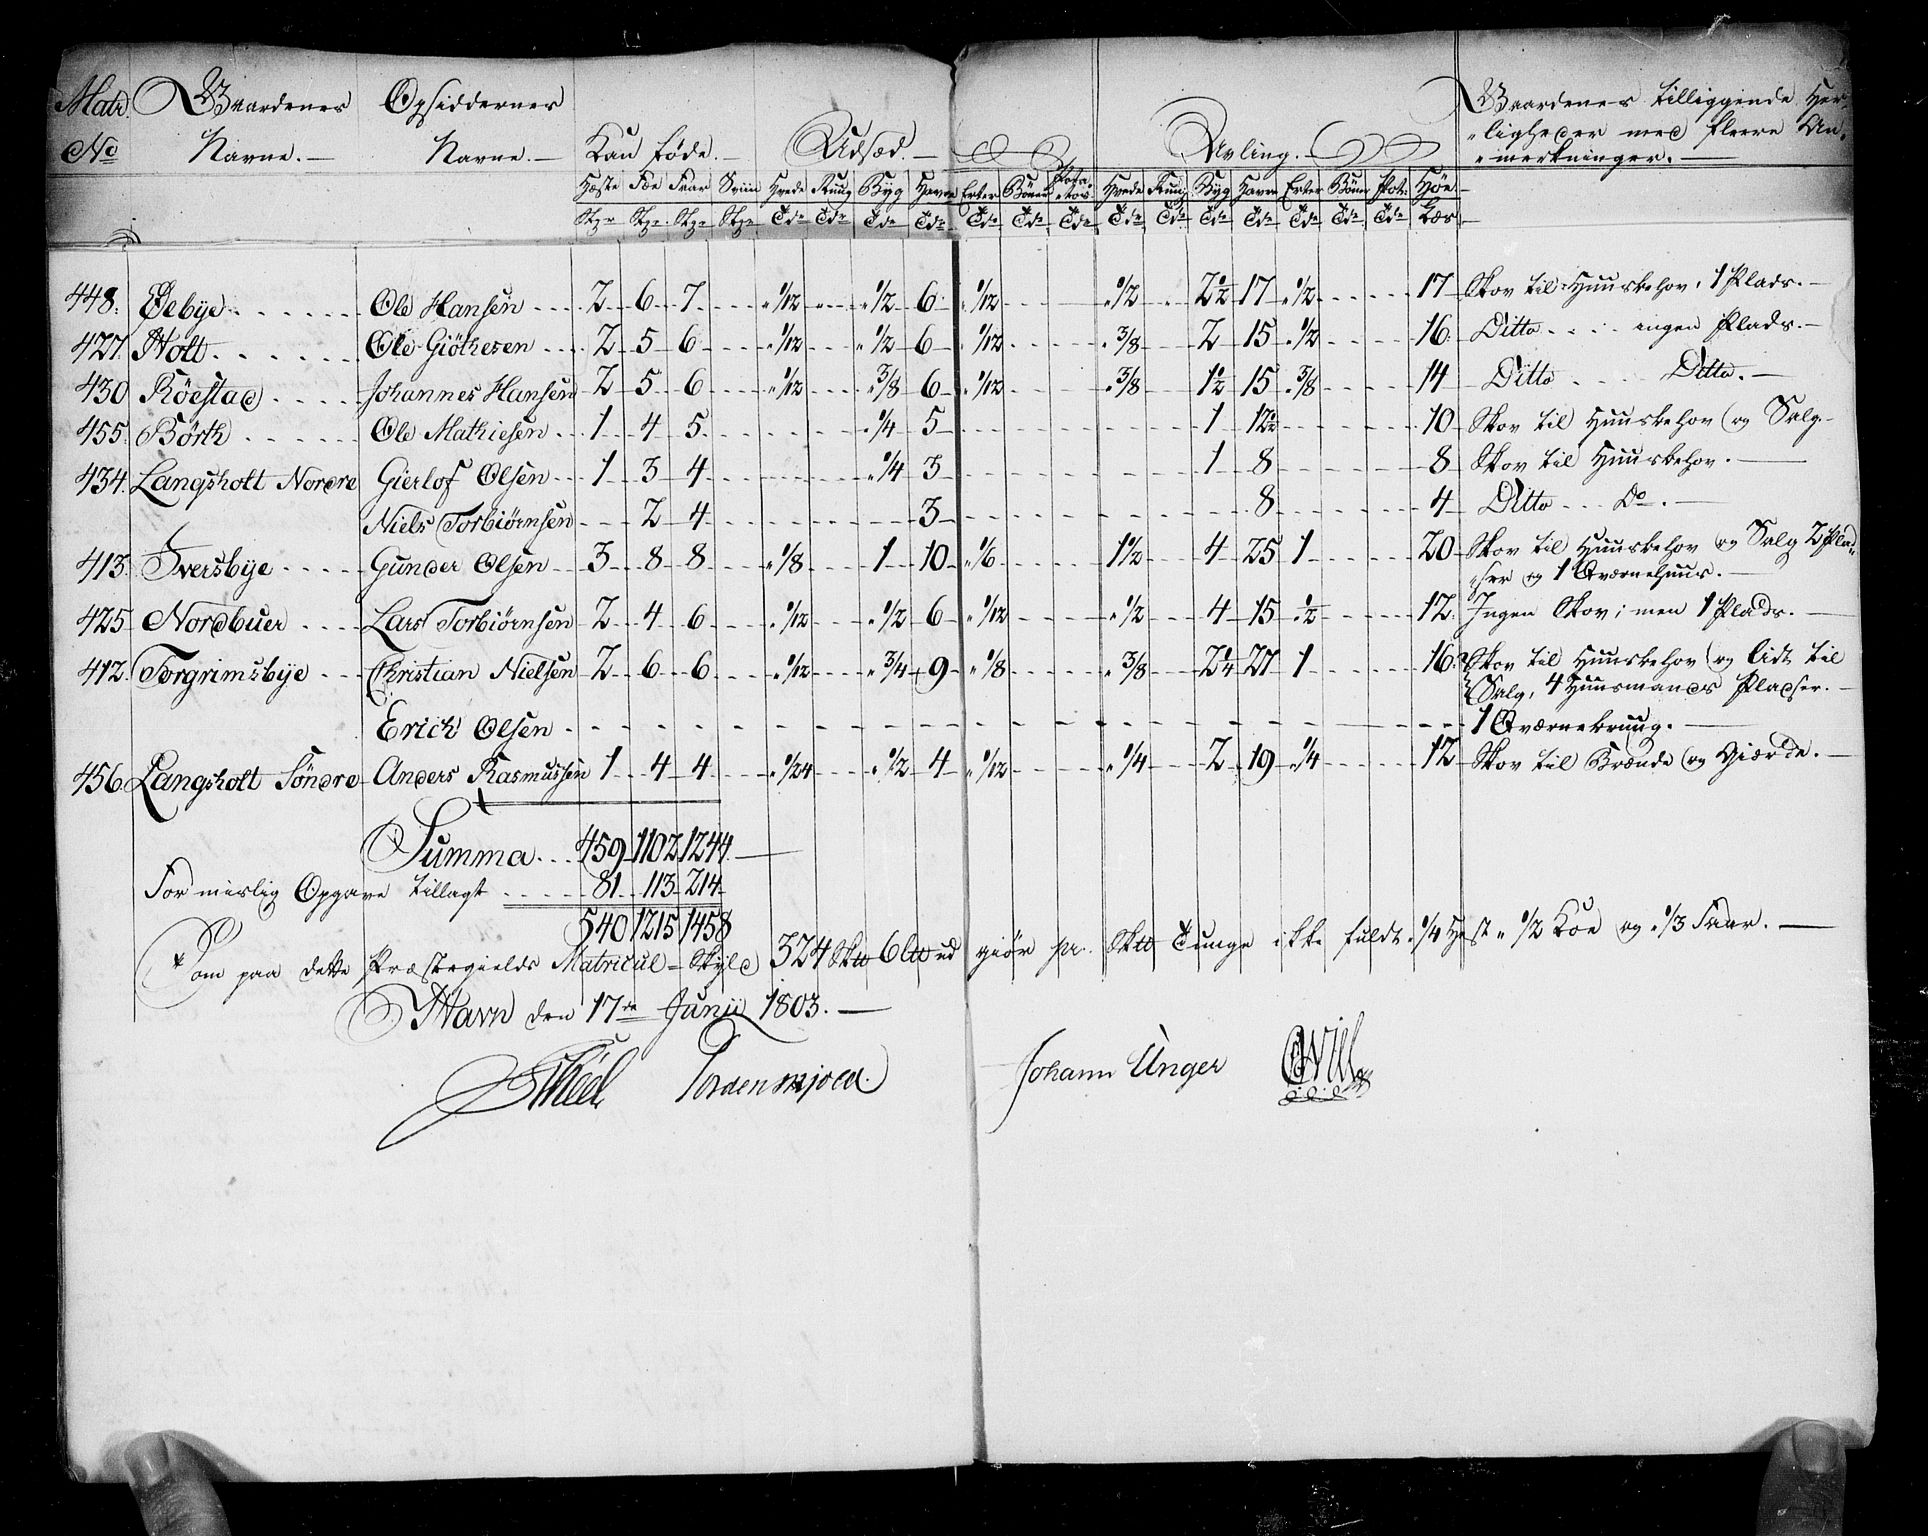 Matr. Gaardenes Opsiddernes Gaardenes tilliggende Her-
No Navne. Navne. Kan føde. Udsæd. Avling. ligheder med fleere An-
merkninger.
Hæste Fæe Faar Sviin Hvede Ruug Byg Havre Erter Bönner Potatos Hvede Ruug Byg Havre Erter Bönner Pot: Høe
Stkr Stkr Stkr Stkr Tdr Tdr Tdr Tdr Tdr Tdr Tdr Tdr Tdr Tdr Tdr Tdr Tdr Tdr Læs
448. Ole Hansen 2 6 7 1/12 1/2 6 1/12 1/2 2 1/2 17 1/2 17 Skov til Huusbehov, 1 Plads.
427. Holt Ole Giöthesen 2 5 6 1/12 1/2 6 1/12 3/8 2 15 1/2 16 Ditto ingen Plads.
430 Röestad Johannes Hansen 2 5 6 1/12 3/8 6 1/12 3/8 1 1/2 15 3/8 14 Ditto Ditto.
455. Börth Ole Mathiesen 1 4 5 1/4 5 1 12 1/2 10 Skov til Huusbehov og Salg
434. Langsholt Nordre Gierlof Olsen 1 3 4 1/4 3 1 8 8 Skov til Huusbehov.
Niels Torbiörnsen 2 4 3 8 4 Ditto Do.
413. Iversbye Gunder Olsen 3 8 8 1/8 1 10 1/6 1 1/2 4 25 1 20 Skov til Huusbehov og Salg 2 Plad-
ser og 1 Qværnehuus.
425 Nordbuer Lars Torbiörnsen 2 4 6 1/12 1/2 6 1/12 1/2 4 15 1/2 12 Ingen Skov; men 1 Plads.
412. Torgrimsbye Christian Nielsen 2 6 6 1/12 3/4 9 1/8 3/8 2 1/4 27 1 16 Skov til Huusbehov og lidt til
Salg, 4 Huusmands Pladser.
Erich Olsen 1 Qværnebruug.
456. Langsholt Söndre Anders Rasmussen 1 4 4 1/24 1/2 4 1/12 1/4 2 19 1/4 12 Skov til Brænde og Giærde.
Summa 459 1102 1244
For mislig Opgave tillagt 81 113 214
540 1215 1458
Som paa dette Præstegields Matricul-Skyld 324 Sktt 6 Ltt ud giör pr. Sktt Tunge ikke fuldt 1/4 Hest, 1/2 Koe og 1/3 Faar.
Havn den 17de Junii 1803.
Tordenskjold. Johann Unger